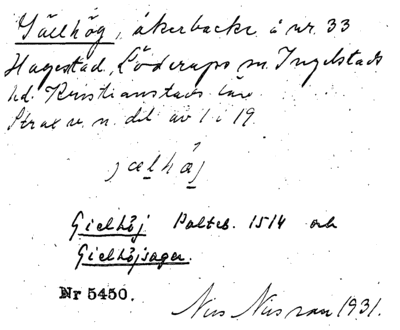 Gällhög, åkerbacke å nr. 33
Hagestad, Löderups sn. Ingelstads
hd. Kristianstads län
Strax v. n. del av 1 i 19.
jælhȧj
Gielhöj Palteb. 1514 och
Gielhöjsager.
Nr 5450.
1931.